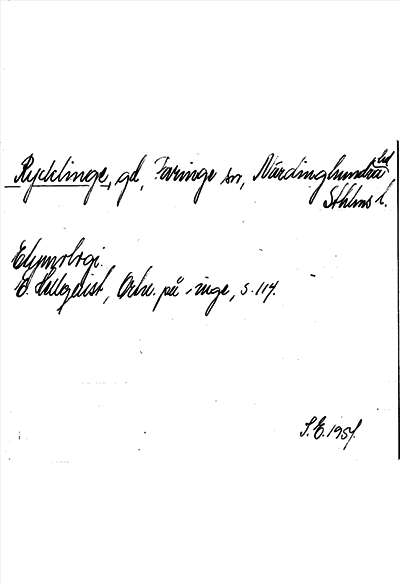 Rycklinge, gd, Faringe sn, Närdinghundra hd,
Sthlms l.
Etymologi.
E. Hellquist, Ortn. på -inge, s. 114.
S.E. 1951.